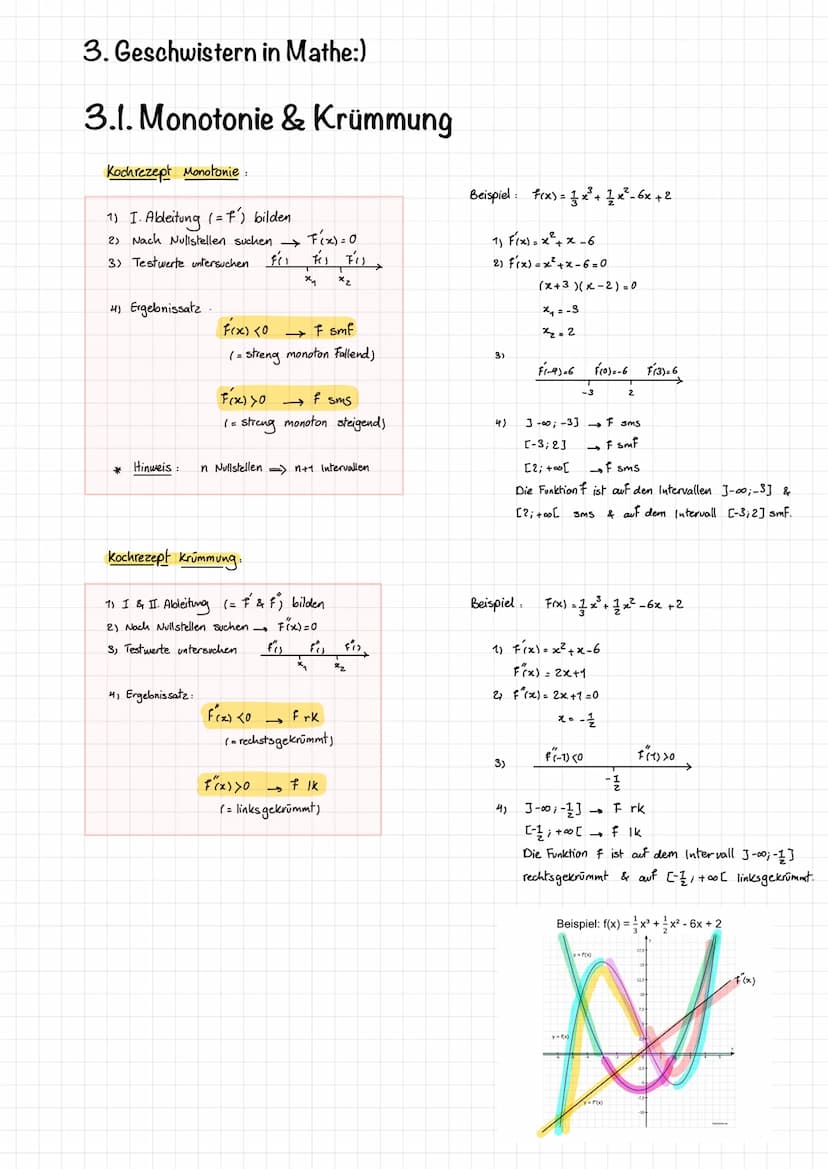 3. Geschwistern in Mathe:)
3.1. Monotonie & Krümmung
Kochrezept Monotonie:
1) I. Ableitung (= f') bilden
2) Nach Nullstellen suchen → f'(x) = 0
3) Testwerte untersuchen f'( ) f'( ) f'( )
x₁ x₂
4) Ergebnissatz.
f'(x) < 0 → f smf
(= streng monoton fallend)
f'(x) > 0 → f sms
(= streng monoton steigend)
* Hinweis: n Nullstellen ⟹ n+1 Intervallen
Beispiel: f(x) = 1/3 x³ + 1/2 x² - 6x + 2
1) f'(x) = x² + x - 6
2) f'(x) = x² + x - 6 = 0
(x+3)(x-2) = 0
x₁ = -3
x₂ = 2
3)
f'(-4)=6 f'(0)=-6 f'(3)=6
-3 2
4) ]-∞; -3] → f sms
[-3; 2] → f smf
[2; +∞[ → f sms
Die Funktion f ist auf den Intervallen ]-∞; -3] &
[2; +∞[ sms & auf dem Intervall [-3; 2] smf.
Kochrezept Krümmung:
1) I & II. Ableitung (= f' & f'') bilden
2) Nach Nullstellen suchen → f''(x) = 0
3) Testwerte untersuchen f''( ) f''( ) f''( )
x₁ x₂
4) Ergebnissatz:
f''(x) < 0 → f rk
(= rechstsgekrümmt)
f''(x) > 0 → f lk
(= linksgekrümmt)
Beispiel: f(x) = 1/3 x³ + 1/2 x² - 6x + 2
1) f'(x) = x² + x - 6
f''(x) = 2x + 1
2) f''(x) = 2x + 1 = 0
x = - 1/2
3) f''(-1) < 0 f''(1) > 0
- 1/2
4) ]-∞; - 1/2] → f rk
[- 1/2; +∞[ → f lk
Die Funktion f ist auf dem Intervall ]-∞; - 1/2]
rechtsgekrümmt & auf [- 1/2; +∞[ linksgekrümmt.
Beispiel: f(x) = 1/3 x³ + 1/2 x² - 6x + 2
f''(x)